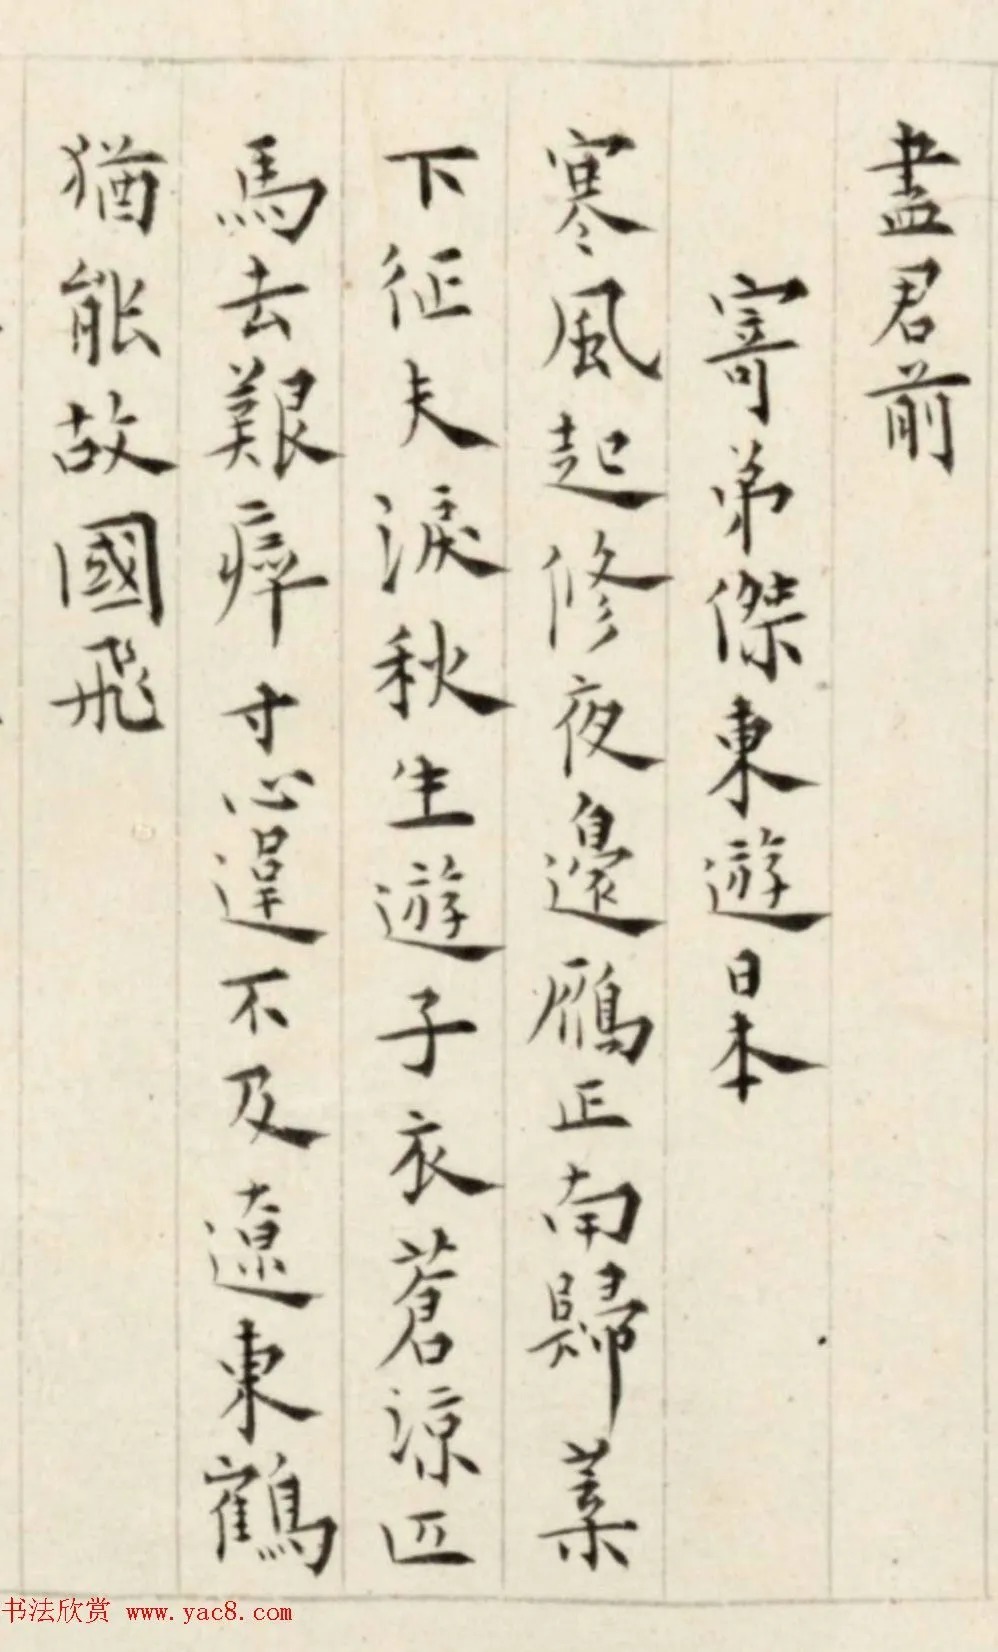 盡君前
寄弟傑東遊日本
寒風起修夜邊鴈正南歸葉
下征夫淚秋生遊子衣蒼涼匹
馬去艱瘁寸心違不及遼東鶴
猶能故國飛
书法欣赏 www.yac8.com